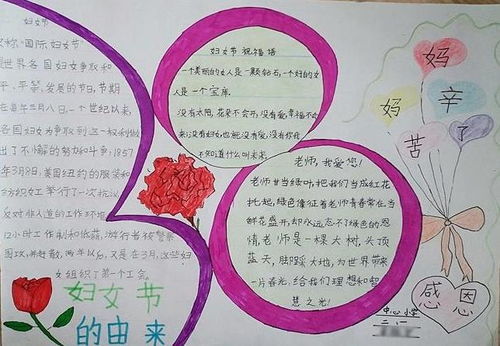 妇女节
又称"国际妇女节
是世界各国妇女争取和
平、平等、发展的节日,节期
在每年三月八日,一个世纪以来,
各国妇女为争取到这一权利做
出了不懈的努力和斗争,1857
年3月8日,美国纽约的服装和
纺织女工举行了一次抗议
反对非人道的工作环境
12小时工作制和低薪,游行者被警察
围攻,并赶散,两年以后,又是在3月,这些妇
女组织了第一个工会
妇女节
的由来
妇女节祝福语
一个美丽的女人是一颗钻石,一个好的女
人是一个宝库
没有太阳,花朵不会开,没有爱,幸福不会
来,没有妇女,也就没有爱,没有你我
不知道什么叫未来
老师,我爱您!
老师甘当绿叶,把我们当成红花
托起,绿色像征着老师青春常在,当
鲜花盛开,却永远忘不了绿色的恩
情,老师是一棵大树,头顶
蓝天,脚踩大地,为世界带来
一片春光,给我们理想和智
慧之光!
妈妈
辛苦了
感恩
中心小学
二、